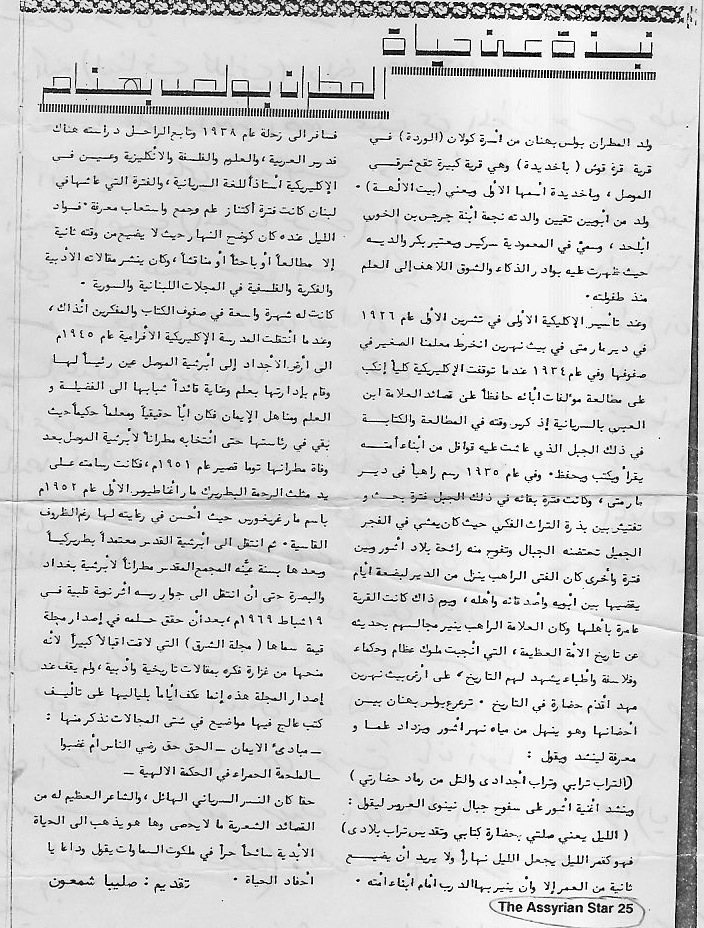 نبذة عن حياة
المطران بولص بهنام
ولد المطران بولس بهنان من أسرة كولان (الوردة) في
قرية قرة قوش (باخديدة) وهي قرية كبيرة تقع شرقي
الموصل ، وباخديدة اسمها الأولى ويعني (بيت الالهة) ٠
ولد من أبويين تقيين والدته نجمة أبنة جرجس بن الخوري
ايلحد ، وسمي في المعمودية سركيس ويعتبر بكر والديه
حيث ظهرت عليه بوادر الذكاء والشوق اللاهف إلى العلم
منذ طفولته ٠
وعند تأسير الإكليكية الأولى في تشرين الأول عام ١٩٢٦
في دير مار متى في بيث نهرين انخرط معلمنا الصغير في
صفوفها وفي عام ١٩٣٤ عندما توقفت الإكليريكية كلياً إنكب
على مطالعة مؤلفات أبائه حافظاً على قصائد العلامة ابن
العبري بالسريانية إذ كرس وقته في المطالعة والكتابة
في ذلك الجبل الذي عاشت عليه قوافل من أبناء أمته
يقرأ ويكتب ويحفظ ٠ وفي عام ١٩٣٥ رسم راهباً في دير
مار متى ، وكانت فترة بقائه في ذلك الجبل فترة بحث و
تفتيش بين بذرة التراث الفكري حيث كان يمشي في الفجر
الجميل تحتضنه الجبال وتفوح منه رائحة بلاد اشور وبين
فترة وأخرى كان الفتى الراهب ينزل من الدير لبضعة أيام
يقضيها بين أبويه وأصدقائه وأهله ، ويوم ذاك كانت القرية
عامرة بأهلها وكان العلامة الراهب ينير مجالسهم بحديثه
عن تاريخ الامة العظيمة ، التي انجبت ملوك عظام وحكماء
وفلاسفة وأطباء يشهد لهم التاريخ ٠ على أرض بيث نهرين
مهد اقدم حضارة في التاريخ ٠ ترعرع بولس بهنان بين
احضانها وهو ينهل من مياه نهر اشور ويزداد علما و
معرفة لينشد ويقول :
(التراب ترابي وتراب أجدادي والتل من رماد حضارتي)
وينشد اغنية اشور على سفوح جبال نينوى العرور ليقول :
(الليل يعني صلتي بحضارة كتابي وتقديس تراب بلادي)
فهو كقمر الليل يجعل الليل نهاراً ولا يريد أن يضيع
ثانية من العمر إلا وأن ينير بها الدرب أمام ابناء أمته ٠
فسافر الى زحلة عام ١٩٣٨ وتابع الراحل دراسته هناك
فدرس العربية ، والعلوم والفلسفة والانكليزية وعين في
الإكليريكية أستاذاً للغة السريانية ، والفترة التي عاشها في
لبنان كانت فترة أكتناز علم وجمع واستعاب معرفة ٠ فسواد
الليل عنده كان كوضح النهار حيث لا يضيع من وقته ثانية
إلا مطالعاً أو باحثاً أو مناقشاً ، وكان ينشر مقالاته الأدبية
والفكرية والفلسفية في المجلات اللبنانية والسورية ٠
كانت له شهرة واسعة في صفوف الكتاب والمفكرين انذاك ،
وعندما انتقلت المدرسة الإكليريكية الأفرامية عام ١٩٤٥م
الى أرض الأجداد إلى أبرشية الموصل عين رئيساً لها
وقام بإدارتها بعلم وغاية قائداً شبابها الى الفضيلة و
العلم ومناهل الإيمان فكان ابًا حقيقياً ومعلماً حكيماً حيث
بقي في رئاستها حتى انتخابه مطراناً لأبرشية الموصل بعد
وفاة مطرانها توما قصير عام ١٩٥١م ، فكانت رسامته على
يد مثلث الرحمة البطريرك مار اغناطيوس الأول عام ١٩٥٢م
باسم مار غريغورس حيث أحسن في رعايته لها رغم الظروف
القاسية ٠ ثم انتقل الى أبرشية القدس معتمداً بطريركياً
وبعدها بسنة عينه المجمع المقدس مطراناً لأبرشية بغداد
والبصرة حتى أن انتقل الى جوار ربه اثر نوبة قلبية في
١٩ شباط ١٩٦٩م ، بعد أن حقق حلمه في إصدار مجلة
قيمة سماها (مجلة الشرق) التي لاقت اقبالاً كبيراً لأنه
منحها من غزارة فكره بمقالات تاريخية وأدبية ، ولم يقف عند
إصدار المجلة هذه إنما عكف أياماً بلياليها على تأليف
كتب عالج فيها مواضيع في شتى المجالات نذكر منها :
ــ مبادئ الايمان ــ الحق حق رضي الناس أم غضبوا
ــ الملحمة الحمراء في الحكمة الالهية ــ
حقا كان النسر السرياني الهائل ، والشاعر العظيم له من
القصائد الشعرية ما لا يحصى وها هو يذهب الى الحياة
الأبدية سائحاً حراً في ملكوت السماوات يقول وداعا يا
احفاد الحياة ٠ تقديم : صليبا شمعون
The Assyrian Star 25